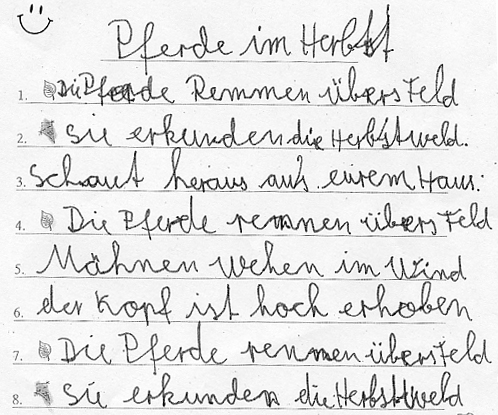 Pferde im Herbst
1. Die Pferde Remmen übers Feld
2. Sie erkunden die Herbstweld.
3. Schaut heraus aus eurem Haus.
4. Die Pferde rennen übers Feld
5. Mähnen wehen im Wind
6. der Kopf ist hoch erhoben
7. Die Pferde rennen übers Feld
8. Sie erkunden die Herbstweld